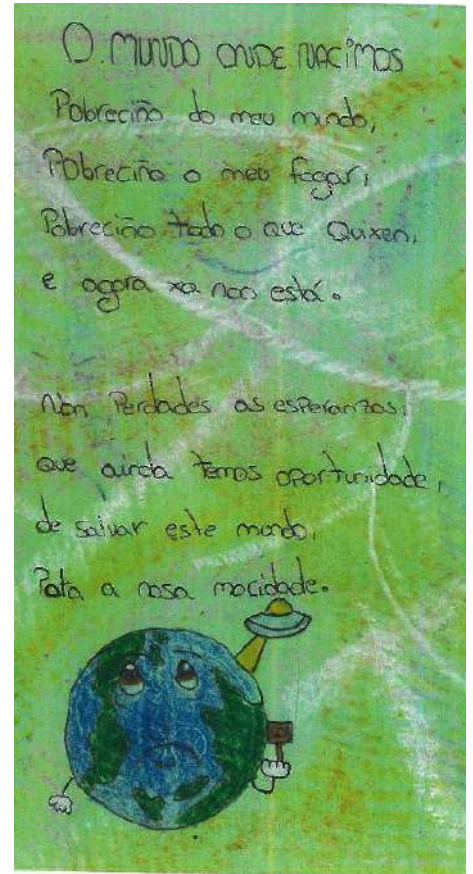 O MUNDO ONDE NACIMOS
Pobreciño do meu mundo,
Pobreciño o meu fogar,
Pobreciño todo o que Quixen,
e agora xa non está.
Non Perdades as esperanzas,
que aínda temos oportunidade,
de salvar este mundo,
Pata a nosa mocidade.